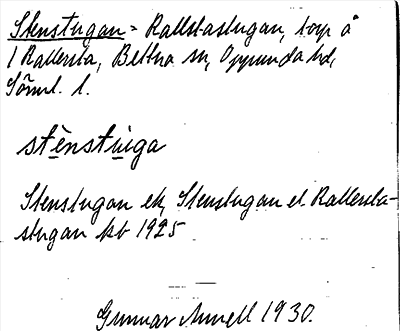 Stenstugan = Rallstastugan, torp å
1 Rallersta, Bettna sn, Oppunda hd,
Sörml. l.
stènstùga
Stenstugan ek, Stenstugan el. Rallersta-
stugan kb 1925
Gunnar Annell 1930.